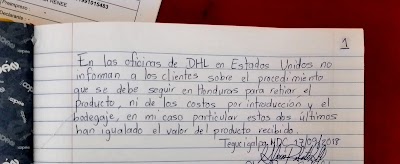 1
En las oficinas de DHL en Estados Unidos no
informan a los clientes sobre el procedimiento
que se debe seguir en Honduras para retirar el
producto, ni de los costos por introducción y el
bodegaje, en mi caso particular estos dos últimos
han igualado el valor del producto recibido.
Tegucigalpa, MDC, 17/03/2018